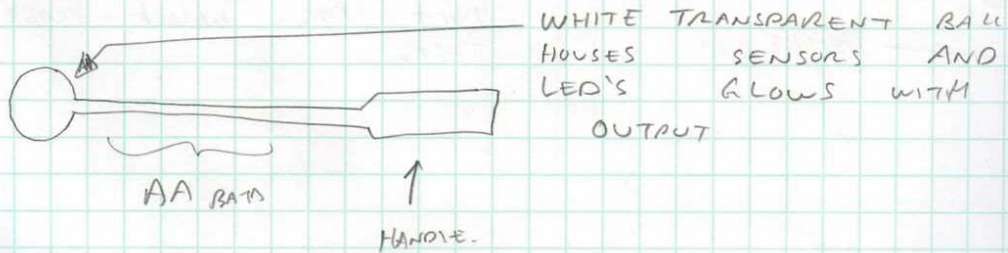 WHITE TRANSPARENT BALL
HOUSES SENSORS AND
LED'S GLOWS WITH
OUTPUT
AA BATTS
HANDLE.